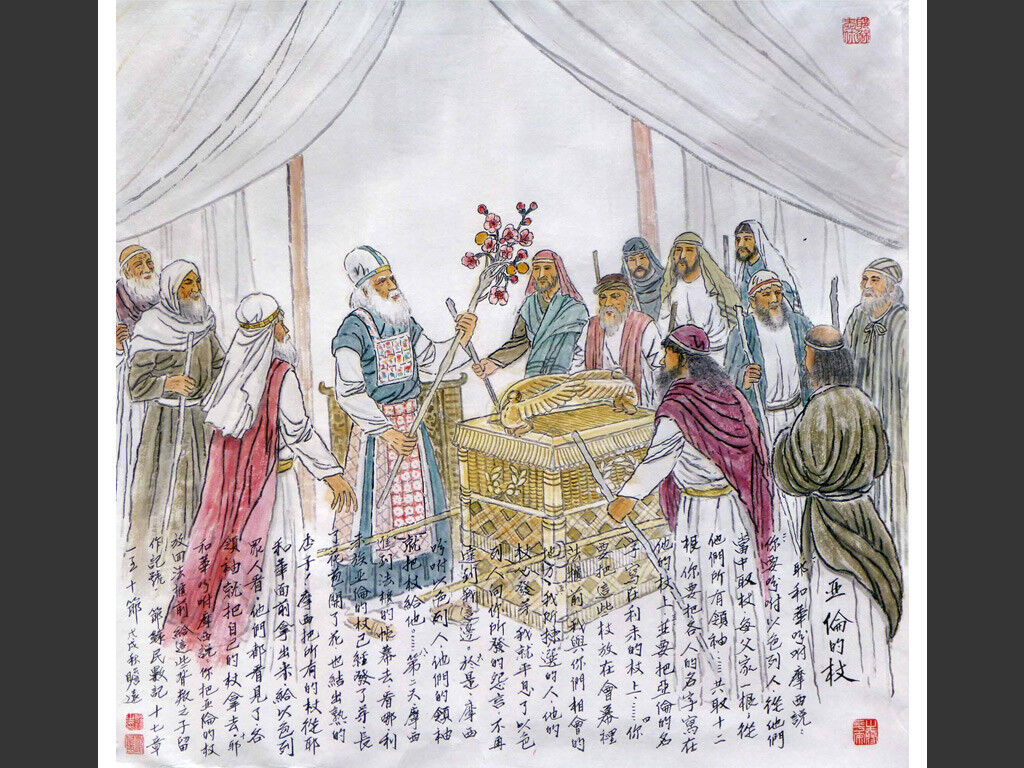 亞倫的杖
耶和華吩咐摩西說：
「你要吩咐以色列人，從他們
當中取杖，每父家一根；從
他們所有領袖……共取十二
根。你要把各人的名字寫在
他的杖上，並要把亞倫的名
字寫在利未的杖上……你
要把這些杖放在會幕裡
法櫃前，我與你們相會的
地方。我所揀選的人，他的
杖必發芽，我就平息了以色
列人向你所發的怨言，不再
達到我這邊。」於是，摩西
吩咐以色列人，他們的領袖
就把杖給他。……第二天，摩西
進到法櫃的帳幕去，看哪，利
未族亞倫的杖已經發了芽，長
了花苞，開了花，也結出熟的
杏子！摩西把所有的杖從耶
和華面前拿出來，給以色列
眾人看；他們都看見了，各
領袖就把自己的杖拿去。耶
和華吩咐摩西說：「你把亞倫的杖
放回法櫃前，給這些背叛之子留
作記號。」 節錄民數記十七章
一至十節 戊戌秋